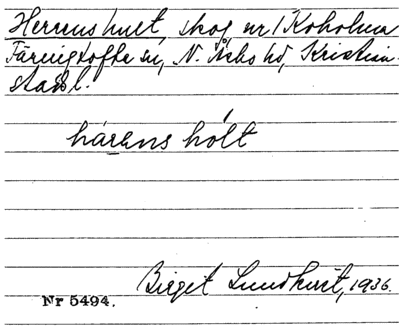 Herrenshult, skog, nr 1 Koholma
Färingtofte sn, N. Åsbo hd, Kristian-
stads l.
hárens hólt
Birget Lundkvist, 1936.
Nr 5494.